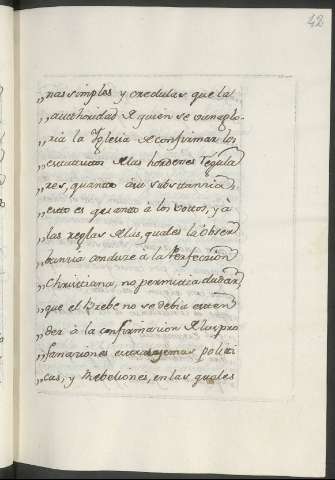 42
„nas simples y credulas que la
„authoridad de quien se vanaglo-
„ria la Iglesia de confirmar los
„estatutos de las hordenes Regula
„res, quanto a su substancia,
„esto es quanto à los votos, y à
„las reglas de las quales la Obser
„bancia conduze à la Perfeccion
„Christiana, no permitia dudar,
„que el Brebe no se debia esten
„der à la confirmacion de las pro
„fanaciones estratagemas politi
„cas, y Rebeliones, en las quales